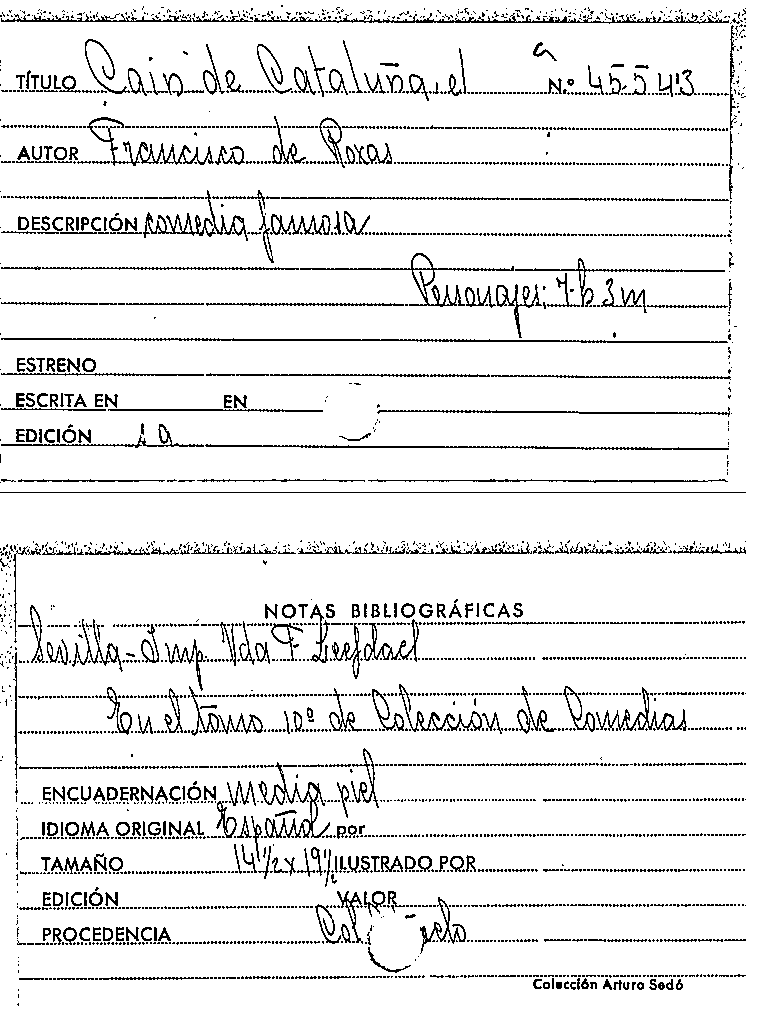 TÍTULO Cain de Cataluña, el N.º 45543
AUTOR Francisco de Roxas
DESCRIPCIÓN comedia famosa
Personajes: 7 h 3 m
ESTRENO
ESCRITA EN EN
EDICIÓN s a
NOTAS BIBLIOGRÁFICAS
Sevilla - Imp Vda F Leefdael
En el tomo 10º de Colección de Comedias
ENCUADERNACIÓN media piel
IDIOMA ORIGINAL Español por
TAMAÑO 14 1/2 x 19 1/2 ILUSTRADO POR
EDICIÓN VALOR
PROCEDENCIA
Colección Arturo Sedó